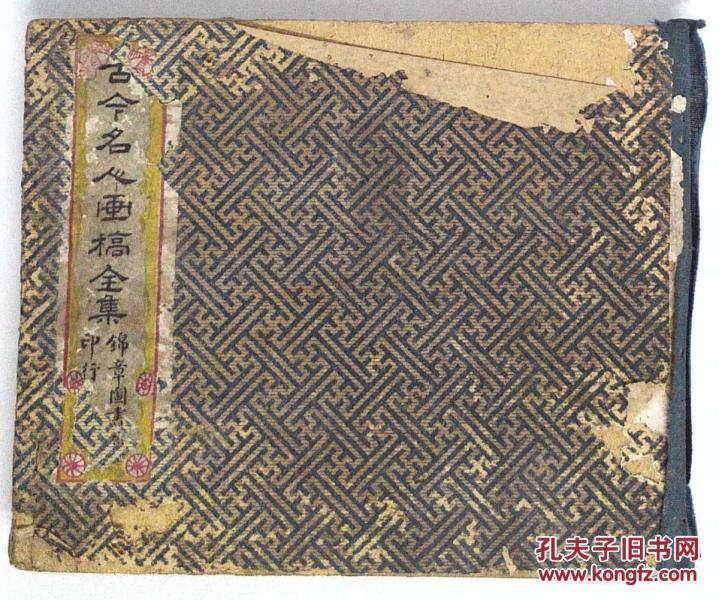 古今名人画稿全集
錦章圖書局
印行
孔夫子旧书网
www.kongfz.com